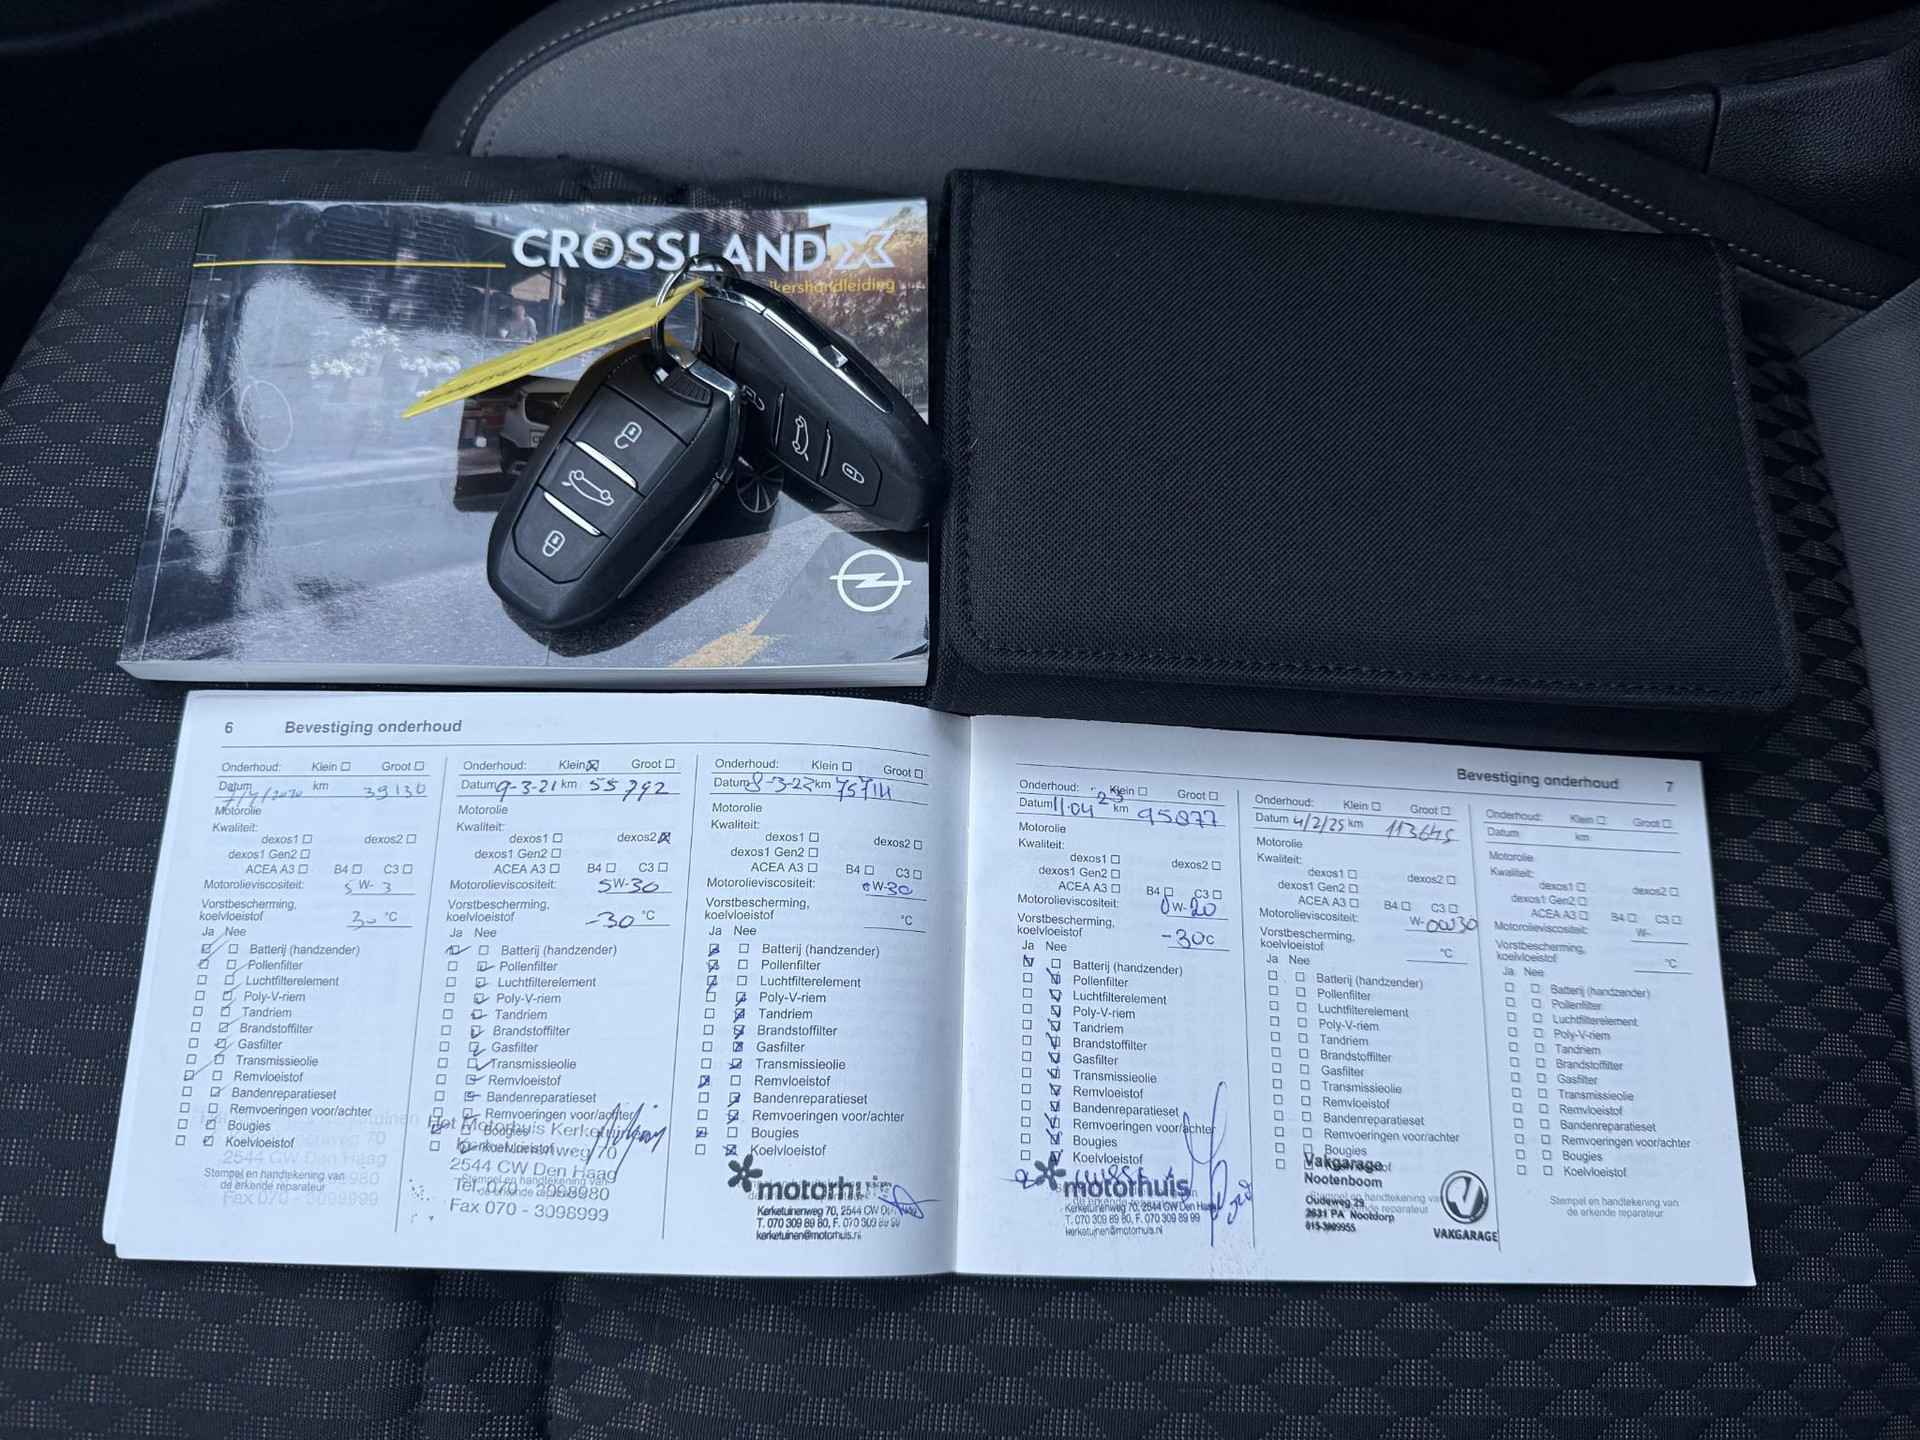 CROSSLAND X
kershandleiding
6 Bevestiging onderhoud
Onderhoud: Klein ☐ Groot ☐
Datum km 39130
Motorolie
Kwaliteit:
dexos1 ☐ dexos2 ☐
dexos1 Gen2 ☐
ACEA A3 ☐ B4 ☐ C3 ☐
Motorolieviscositeit: 5 W- 3
Vorstbescherming,
koelvloeistof 30 °C
Ja Nee
Batterij (handzender)
Pollenfilter
Luchtfilterelement
Poly-V-riem
Tandriem
Brandstoffilter
Gasfilter
Transmissieolie
Remvloeistof
Bandenreparatieset
Remvoeringen voor/achter
Bougies
Koelvloeistof
2544 CW Den Haag
Stempel en handtekening van
de erkende reparateur
Fax 070 - 3098999
Onderhoud: Klein ☒ Groot ☐
Datum 9-3-21 km 55792
Motorolie
Kwaliteit:
dexos1 ☐ dexos2 ☒
dexos1 Gen2 ☐
ACEA A3 ☐ B4 ☐ C3 ☐
Motorolieviscositeit: 5W-30
Vorstbescherming,
koelvloeistof -30 °C
Ja Nee
Batterij (handzender)
Pollenfilter
Luchtfilterelement
Poly-V-riem
Tandriem
Brandstoffilter
Gasfilter
Transmissieolie
Remvloeistof
Bandenreparatieset
Remvoeringen voor/achter
Het Motorhuis Kerketuinen
Bougies
Koelvloeistof
Kerketuinenweg 70
2544 CW Den Haag
Tel. 070 - 3098980
Fax 070 - 3098999
Onderhoud: Klein ☐ Groot ☐
Datum 8-3-22 km 75714
Motorolie
Kwaliteit:
dexos1 ☐ dexos2 ☐
dexos1 Gen2 ☐
ACEA A3 ☐ B4 ☐ C3 ☐
Motorolieviscositeit: 0W-30
Vorstbescherming,
koelvloeistof °C
Ja Nee
Batterij (handzender)
Pollenfilter
Luchtfilterelement
Poly-V-riem
Tandriem
Brandstoffilter
Gasfilter
Transmissieolie
Remvloeistof
Bandenreparatieset
Remvoeringen voor/achter
Bougies
Koelvloeistof
motorhuis
Kerketuinenweg 70, 2544 CW Den
T. 070 309 89 80, F. 070 309 89 99
kerketuinen@motorhuis.nl
Bevestiging onderhoud 7
Onderhoud: Klein ☐ Groot ☐
Datum 11-04 23 km 95877
Motorolie
Kwaliteit:
dexos1 ☐ dexos2 ☐
dexos1 Gen2 ☐
ACEA A3 ☐ B4 ☐ C3 ☐
Motorolieviscositeit: 0W-20
Vorstbescherming,
koelvloeistof -30c
Ja Nee
Batterij (handzender)
Pollenfilter
Luchtfilterelement
Poly-V-riem
Tandriem
Brandstoffilter
Gasfilter
Transmissieolie
Remvloeistof
Bandenreparatieset
Remvoeringen voor/achter
Bougies
Koelvloeistof
motorhuis
Kerketuinenweg 70, 2544 CW Den Haag
T. 070 309 89 80, F. 070 309 89 99
kerketuinen@motorhuis.nl
Onderhoud: Klein ☐ Groot ☐
Datum 4/2/25 km 113645
Motorolie
Kwaliteit:
dexos1 ☐ dexos2 ☐
dexos1 Gen2 ☐
ACEA A3 ☐ B4 ☐ C3 ☐
Motorolieviscositeit: W-0W30
Vorstbescherming,
koelvloeistof °C
Ja Nee
Batterij (handzender)
Pollenfilter
Luchtfilterelement
Poly-V-riem
Tandriem
Brandstoffilter
Gasfilter
Transmissieolie
Remvloeistof
Bandenreparatieset
Remvoeringen voor/achter
Bougies
Vakgarage
Nootenboom
Stempel en handtekening van
Oudeweg 29
2631 PA Nootdorp
015-3809955
VAKGARAGE
Onderhoud: Klein ☐ Groot ☐
Datum km
Motorolie
Kwaliteit:
dexos1 ☐ dexos2 ☐
dexos1 Gen2 ☐
ACEA A3 ☐ B4 ☐ C3 ☐
Motorolieviscositeit: W-
Vorstbescherming,
koelvloeistof °C
Ja Nee
Batterij (handzender)
Pollenfilter
Luchtfilterelement
Poly-V-riem
Tandriem
Brandstoffilter
Gasfilter
Transmissieolie
Remvloeistof
Bandenreparatieset
Remvoeringen voor/achter
Bougies
Koelvloeistof
Stempel en handtekening van
de erkende reparateur